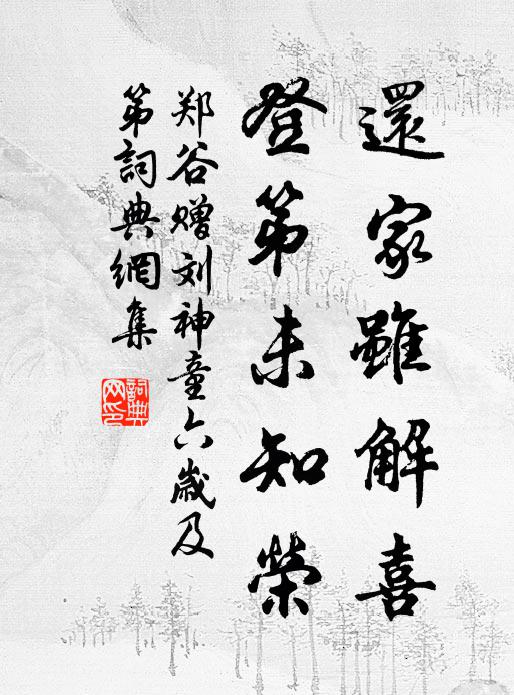 還家雖解喜
登第未知榮
郑谷赠刘神童六歲及
第詞典網集
詞典网印